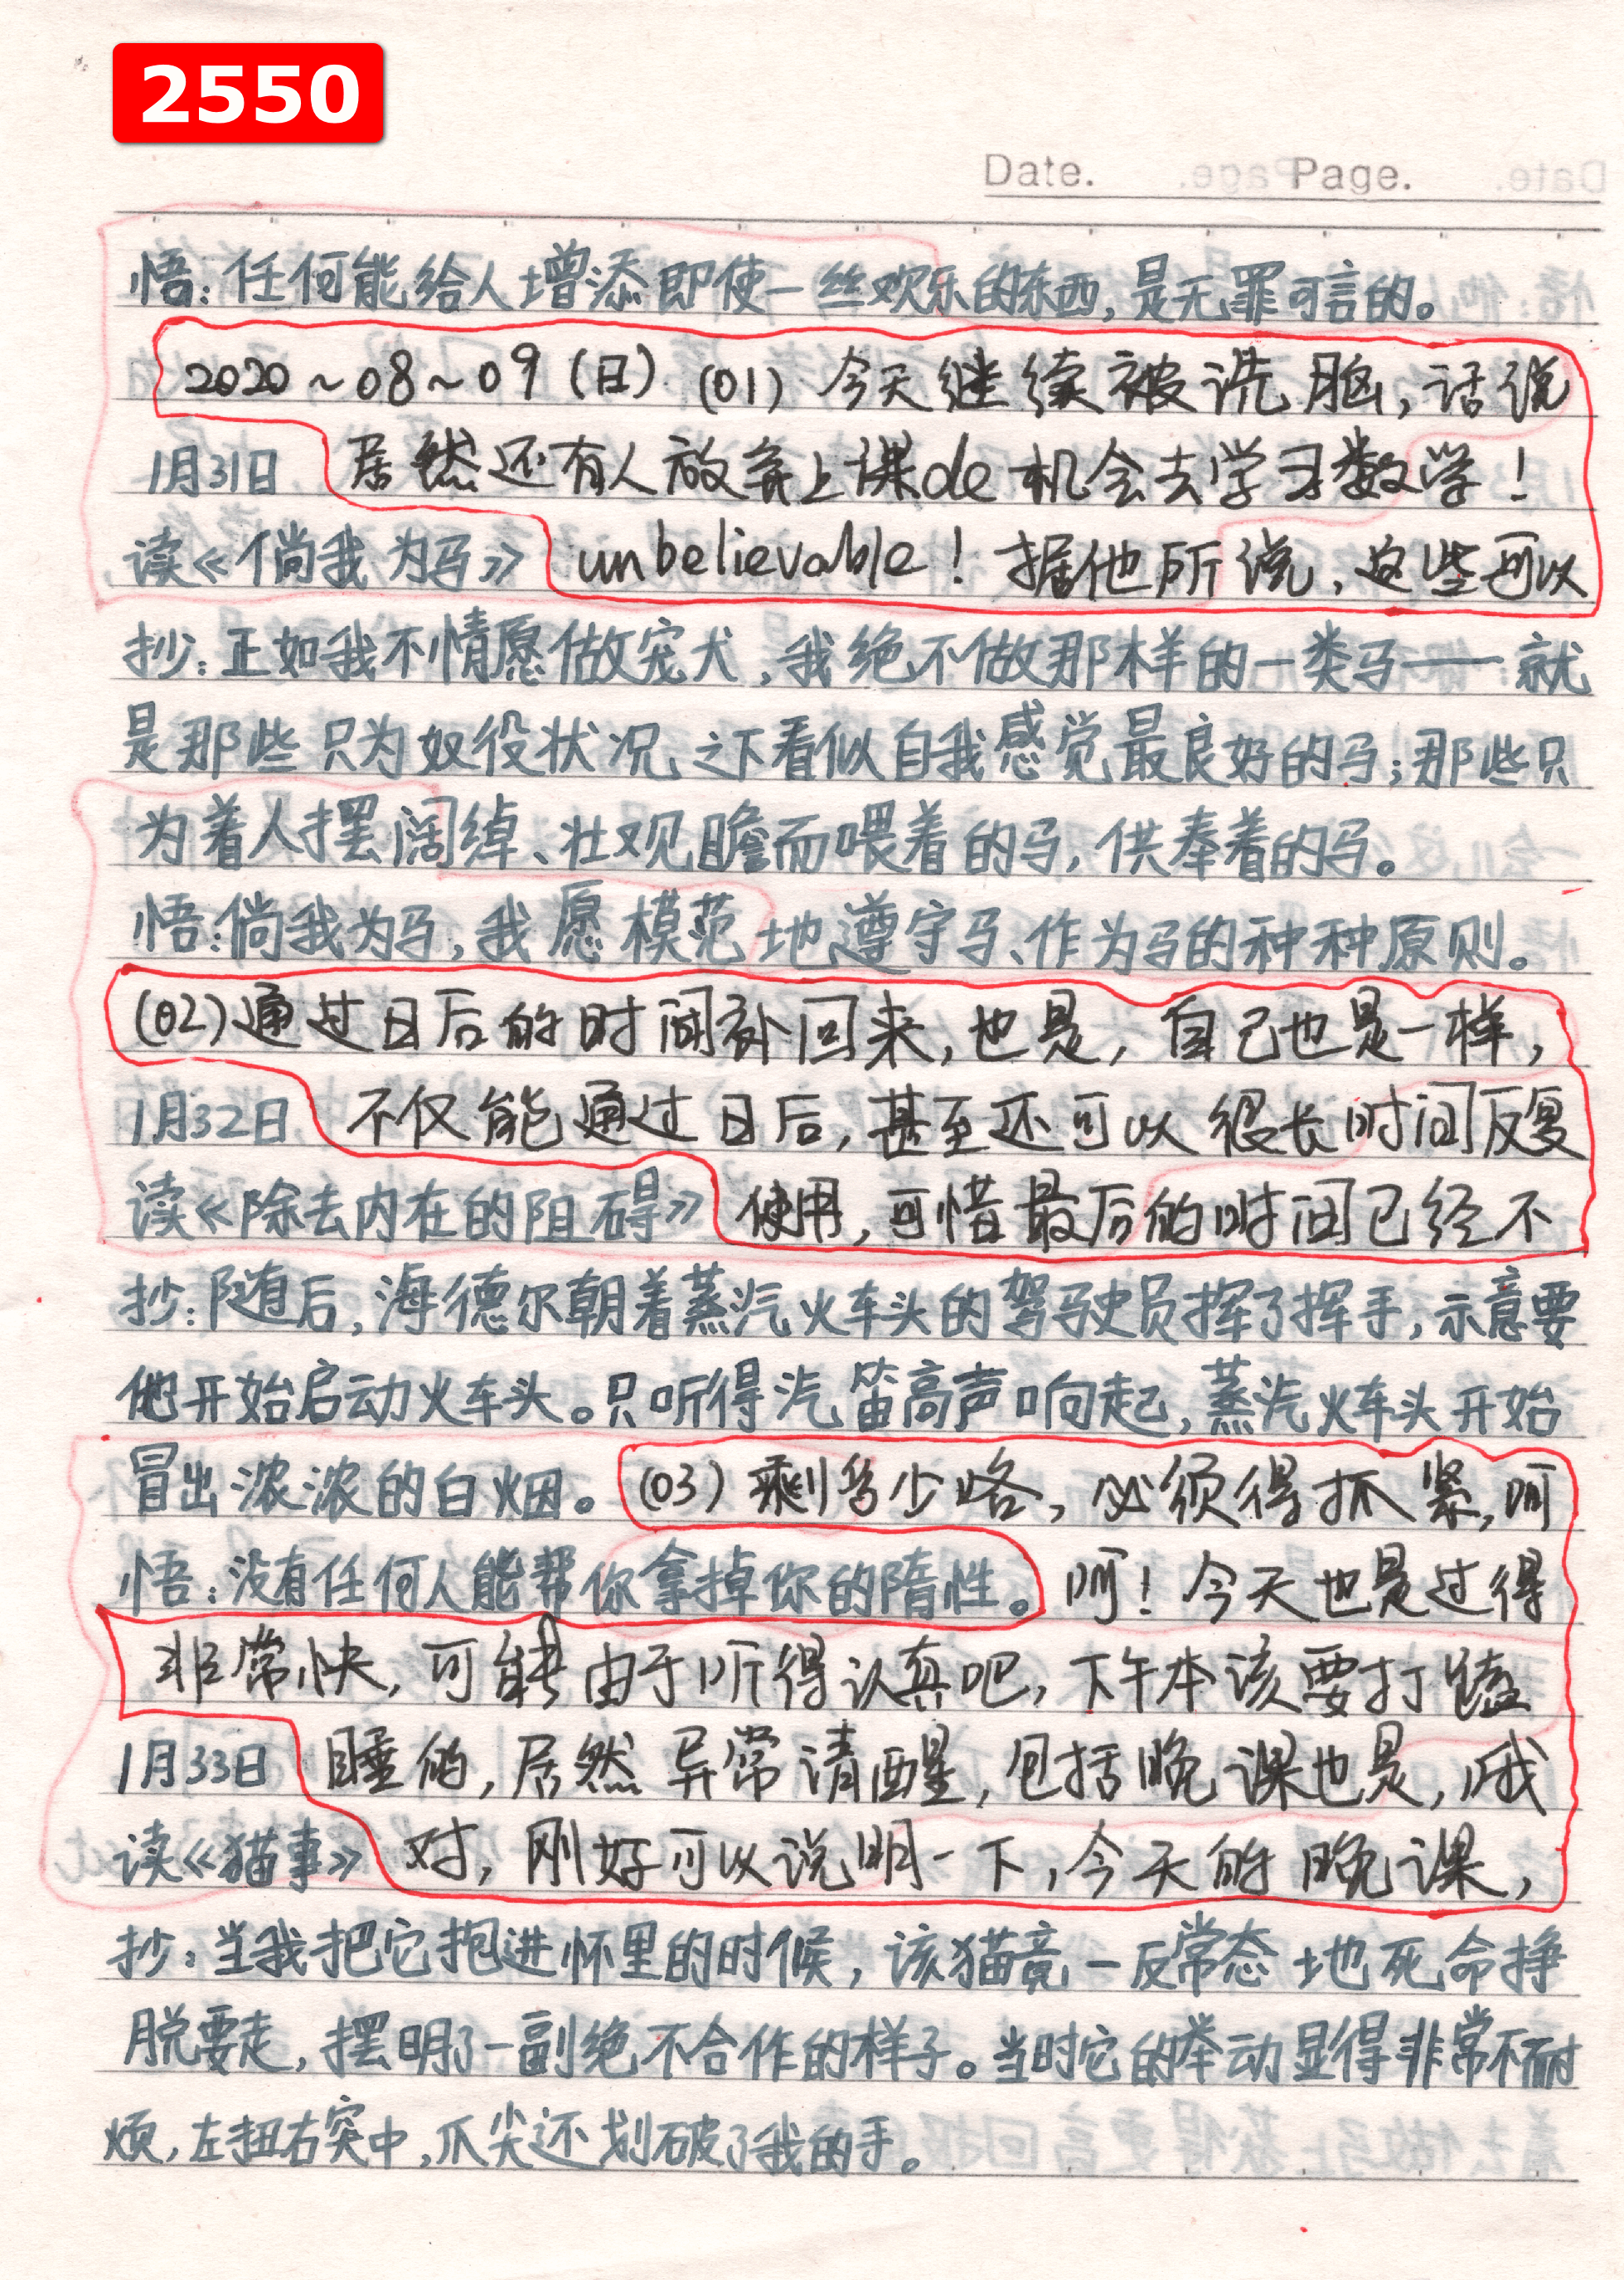 2550
Date. Page.
悟：任何能给人增添即使一丝欢乐的东西，是无罪可言的。
2020~08~09（日）（01）今天继续被洗脑，话说
1月31日 居然还有人放弃上课de机会去学习数学！
读《倘我为马》 unbelievable！据他所说，这些可以
抄：正如我不情愿做宠犬，我绝不做那样的一类马——就
是那些只为奴役状况之下看似自我感觉最良好的马；那些只
为着人摆阔绰、壮观瞻而喂着的马，供奉着的马。
悟：倘我为马，我愿模范地遵守马、作为马的种种原则。
（02）通过日后的时间补回来，也是，自己也是一样，
1月32日 不仅能通过日后，甚至还可以很长时间反复
读《除去内在的阻碍》 使用，可惜最后的时间已经不
抄：随后，海德尔朝着蒸汽火车头的驾驶员挥了挥手，示意要
他开始启动火车头。只听得汽笛高声响起，蒸汽火车头开始
冒出浓浓的白烟。（03）剩多少咯，必须得抓紧，呵
悟：没有任何人能帮你拿掉你的隋性。呵！今天也是过得
非常快，可能由于听得认真吧，下午本该要打瞌
1月33日 睡的，居然异常清醒，包括晚课也是，哦
读《猫事》 对，刚好可以说明一下，今天的晚课，
抄：当我把它抱进怀里的时候，该猫竟一反常态地死命挣
脱要走，摆明了一副绝不合作的样子。当时它的举动显得非常不耐
烦，左扭右突中，爪尖还划破了我的手。